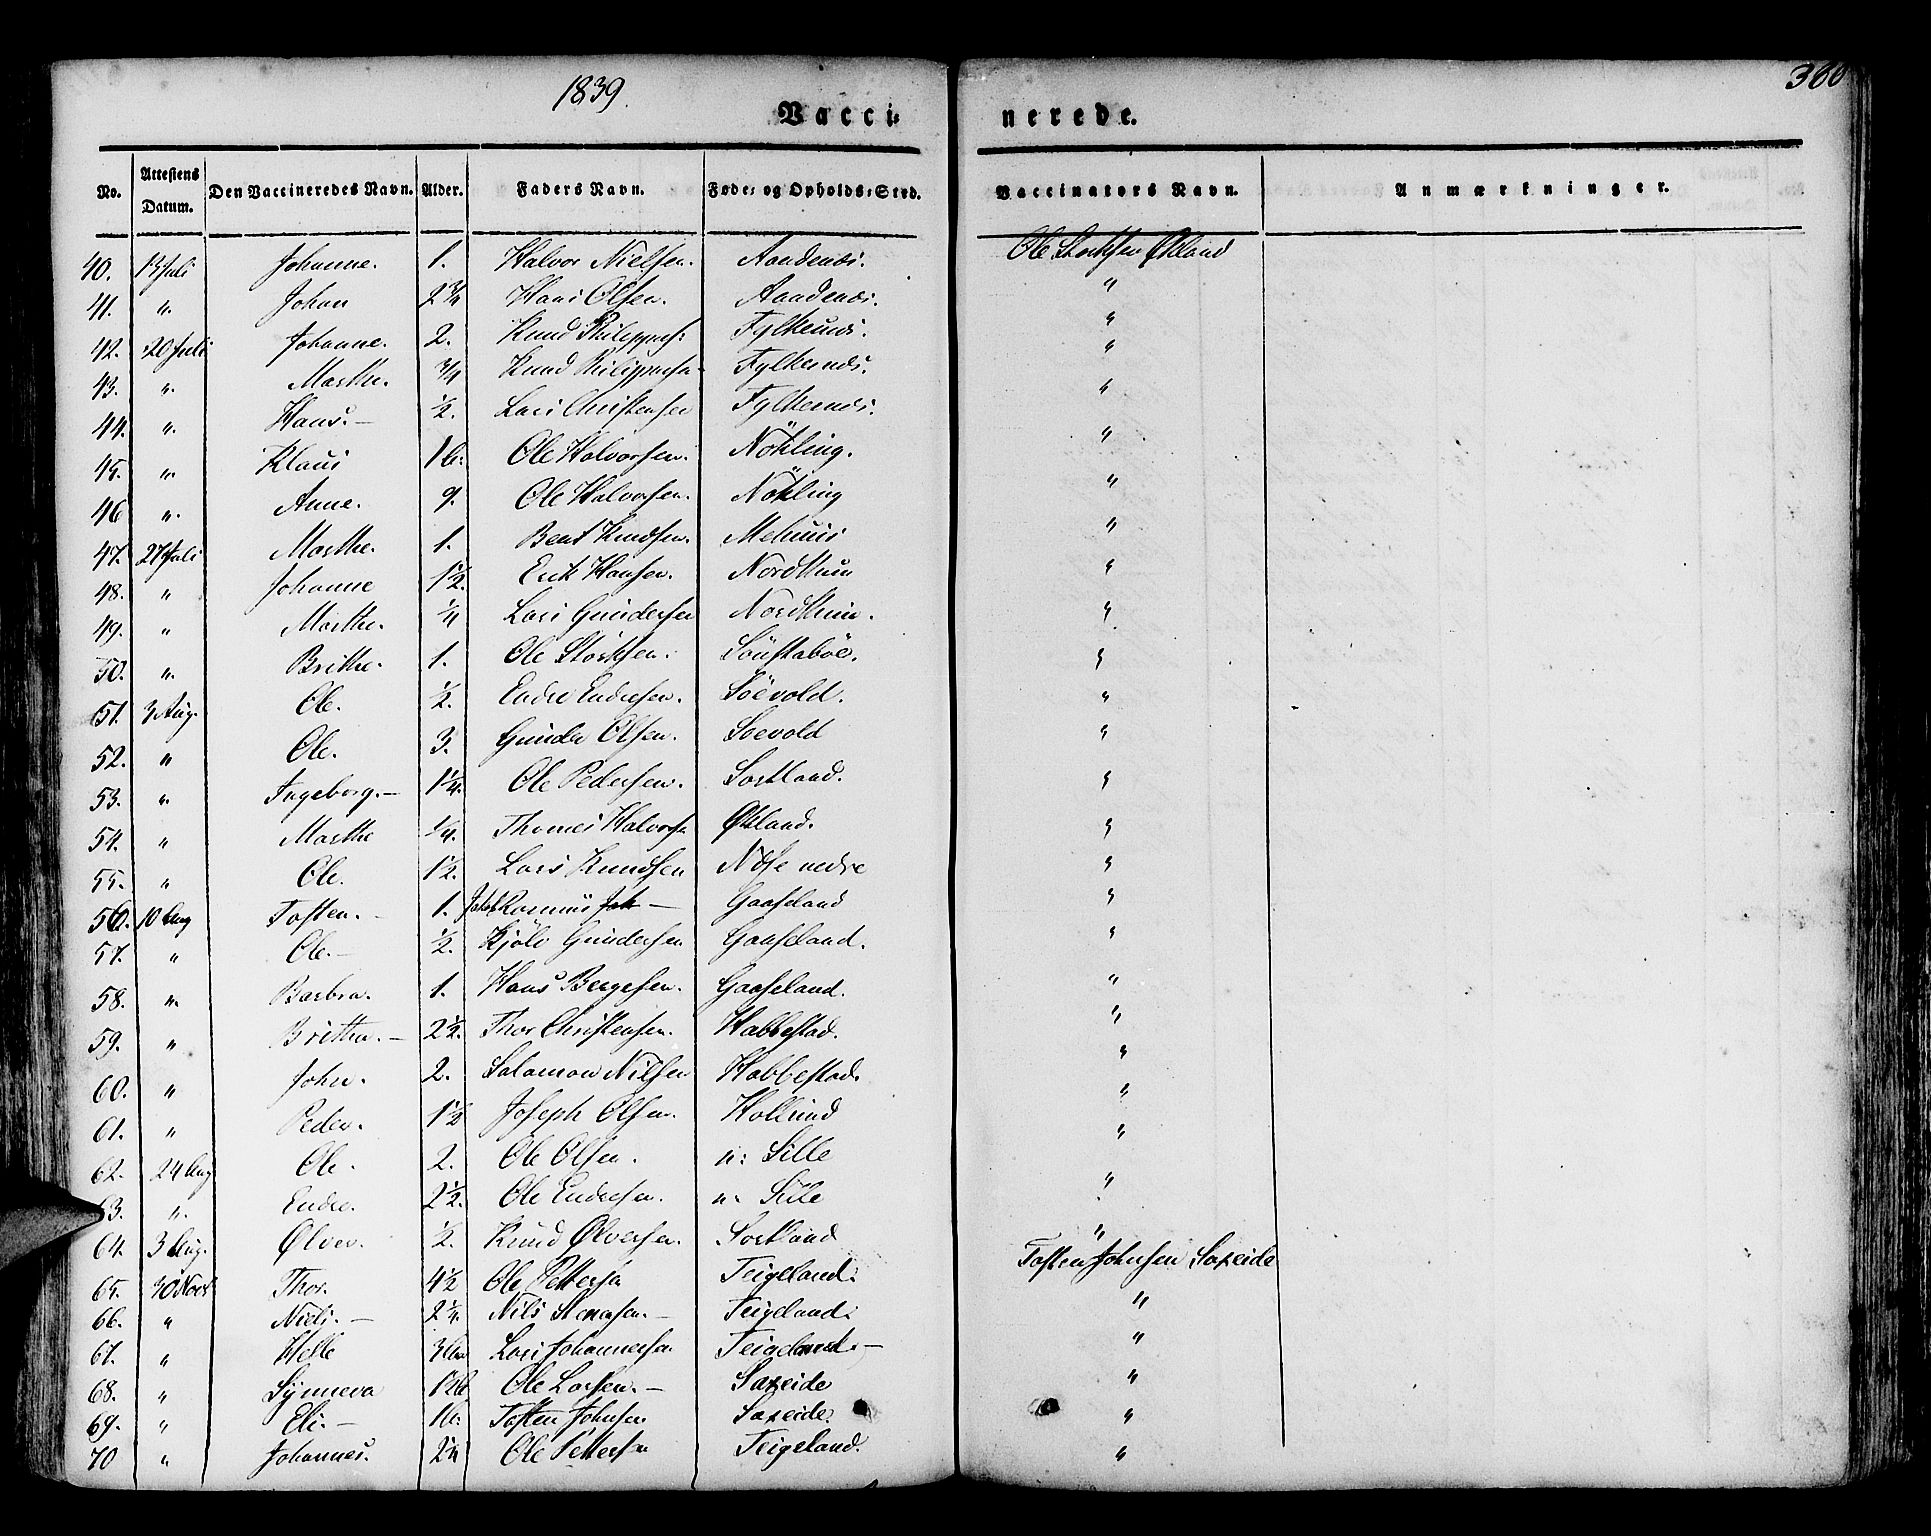 1839.
Vacci=nerede.
No. Attestens Datum. Den Vaccineredes Navn. Alder. Faders Navn. Føde= og Opholds=Sted. Vaccinators Navn. Anmærkninger.
40. 13 Juli Johanne. 1. Halvor Nielsen. Aandenæs. Ole Økland
41. " Johan 2 3/4 Hans Olsen. Aandenæs. "
42. 20 Juli Johanne. 2. Knud Philipps: Fylkesnæs. "
43. " Marthe. 3/4 Knud Philippsen Fylkesnæs. "
44. " Hans.— 1/2. Lars Christensen Fylkesnæs. "
45. " Klaus 16. Ole Halvorsen. Nökling. "
46 " Anne. 9. Ole Halvorsen. Nökling "
47. 27 Juli Marthe. 1. Bent Knudsen. "
48. " Johanne 1 1/2. Erik Hansen. "
49. " Marthe. 1/4 Lars Gundersen "
50. " Brithe. 1. Ole Störksen. Söustaböe. "
51. 3 Aug. Ole. 1/2. Endre Endresen. Söevold. "
52. " Ole. 3. Gunder Olsen. Soevold "
53. " Ingeborg.— 1 1/4. Ole Pedersen. Sortland. "
54. " Marthe 1/4. Thomes Halvors Økland. "
55. " Ole. 1 1/2. Lars Knudsen nedre "
56. 10 Aug Tosten.— 1. Rasmus — Gaaseland "
57. " Ole.— 1/2. Kjölv Gundersen Gaaseland. "
58. " Barbra. 1. Hans Bergesen. Gaaseland. "
59. " Britha.— 2 1/2. Thor Christensen. Habbestad. "
60. " John. 2. Salamon Nilsen Habbestad. "
61. " Peder. 1 1/2 Joseph Olsen. Hollund "
62. 24 Aug Ole. 2. Ole Olsen. n: Sille "
63. " Endre. 2 1/2. Ole Endresen. n. Sille "
64. 3 Aug. Ølver. 1/2. Knud Ølversen. Sortland "
65. 30 Novb Thor. 4 1/2 Ole Pettersen Teigeland. Tosten Johnsen Saxeide
66. " Niels.— 2 1/4. Nils — Teigeland. "
67. " Helle Lars Johannesen Teigeland.— "
68. " Synneva Ole Larsen.— Saxeide "
69. " Eli.— 16. Tosten Johnsen Saxeide. "
70 " Johannes. 2 1/4 Ole Pettersen Teigeland. "